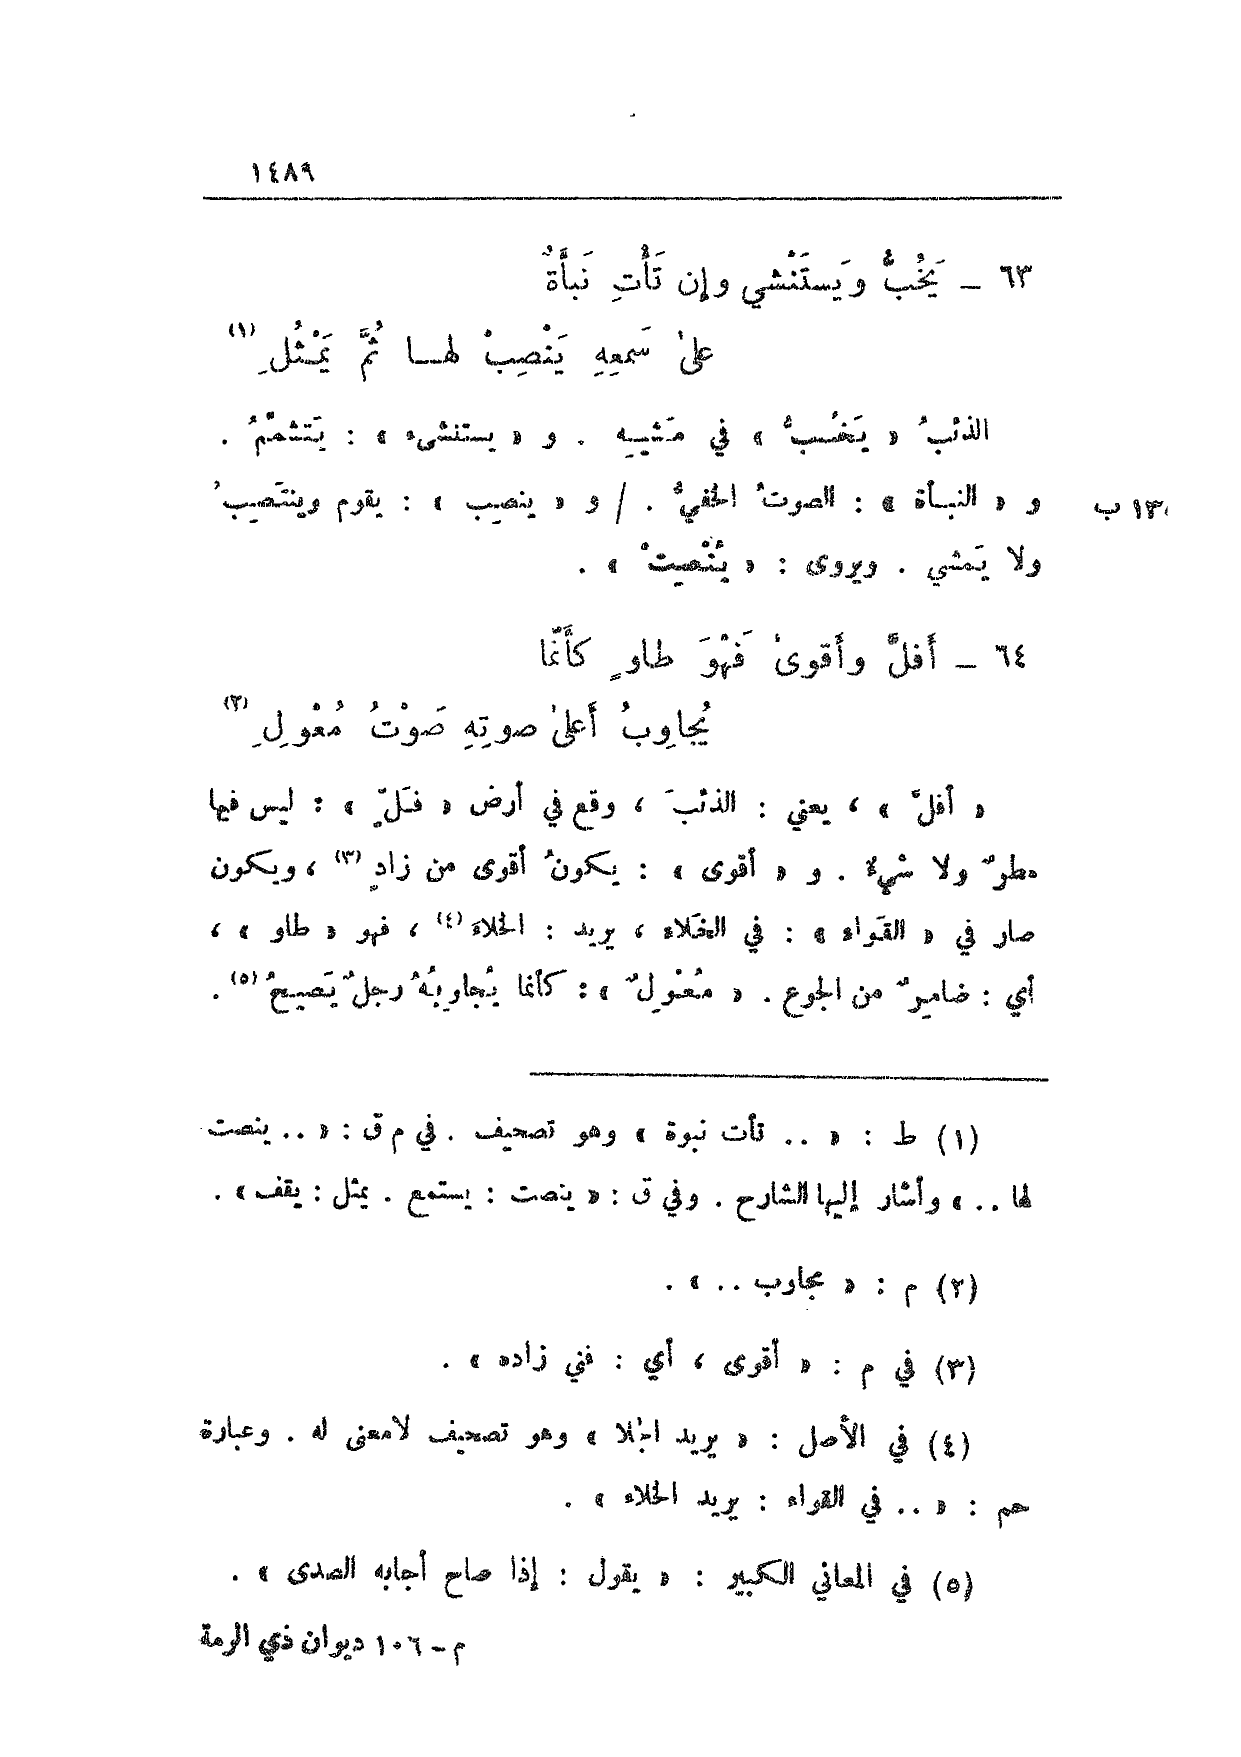 ١٤٨٩
٦٣ – يَخُبُّ ويَستَنْشي وإن تَأْتِ نَبأَةٌ
علىٰ سَمعِهِ يَنْصِبْ لهـا ثُمَّ يَمْثُلِ (١)
الذئبُ « يَخُبُّ » في مَشيِه . و « يستنشىء » : يَتشمَّمُ .
و « النبـأة » : الصوتُ الخفيُّ . / و « ينصِب » : يقوم وينتَصِبُ
١٣٠ ب
ولا يَمشي . ويروى : « يُنْصِتْ » .
٦٤ – أَفلَّ وأَقوىٰ فَهْوَ طاوٍ كأَنَّما
يُجاوِبُ أَعلىٰ صوتِهِ صَوْتُ مُعْوِلِ (٢)
« أفلَّ » ، يعني : الذئبَ ، وقع في أرض « فَلٍّ » : ليس فيها
مطرٌ ولا شيْءٌ . و « أقوى » : يكونُ أقوى من زادٍ (٣) ، ويكون
صار في « القَواء » : في الخَلاء ، يريد : الخلاءَ (٤) ، فهو « طاو » ،
أي : ضامِرٌ من الجوع . « مُعْوِلٌ » : كأنما يُجاوِبُهُ رجلٌ يَصيحُ (٥) .
(١) ط : « .. تأت نبوة » وهو تصحيف . في م ق : « .. ينصت
لها .. » وأشار إليها الشارح . وفي ق : « ينصت : يستمع . يمثل : يقف » .
(٢) م : « مجاوب .. » .
(٣) في م : « أقوى ، أي : فني زاده » .
(٤) في الأصل : « يريد اجلا » وهو تصحيف لامعنى له . وعبارة
حم : « .. في القواء : يريد الخلاء » .
(٥) في المعاني الكبير : « يقول : إذا صاح أجابه الصدى » .
م – ١٠٦ ديوان ذي الرمة